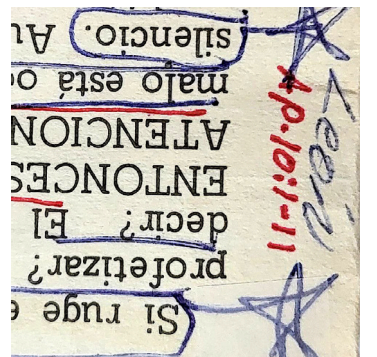 Si ruge e
profetizar?
decir? El
ENTONCES
ATENCION
malo está oc
silencio. Au
León
Ap. 10:1-11